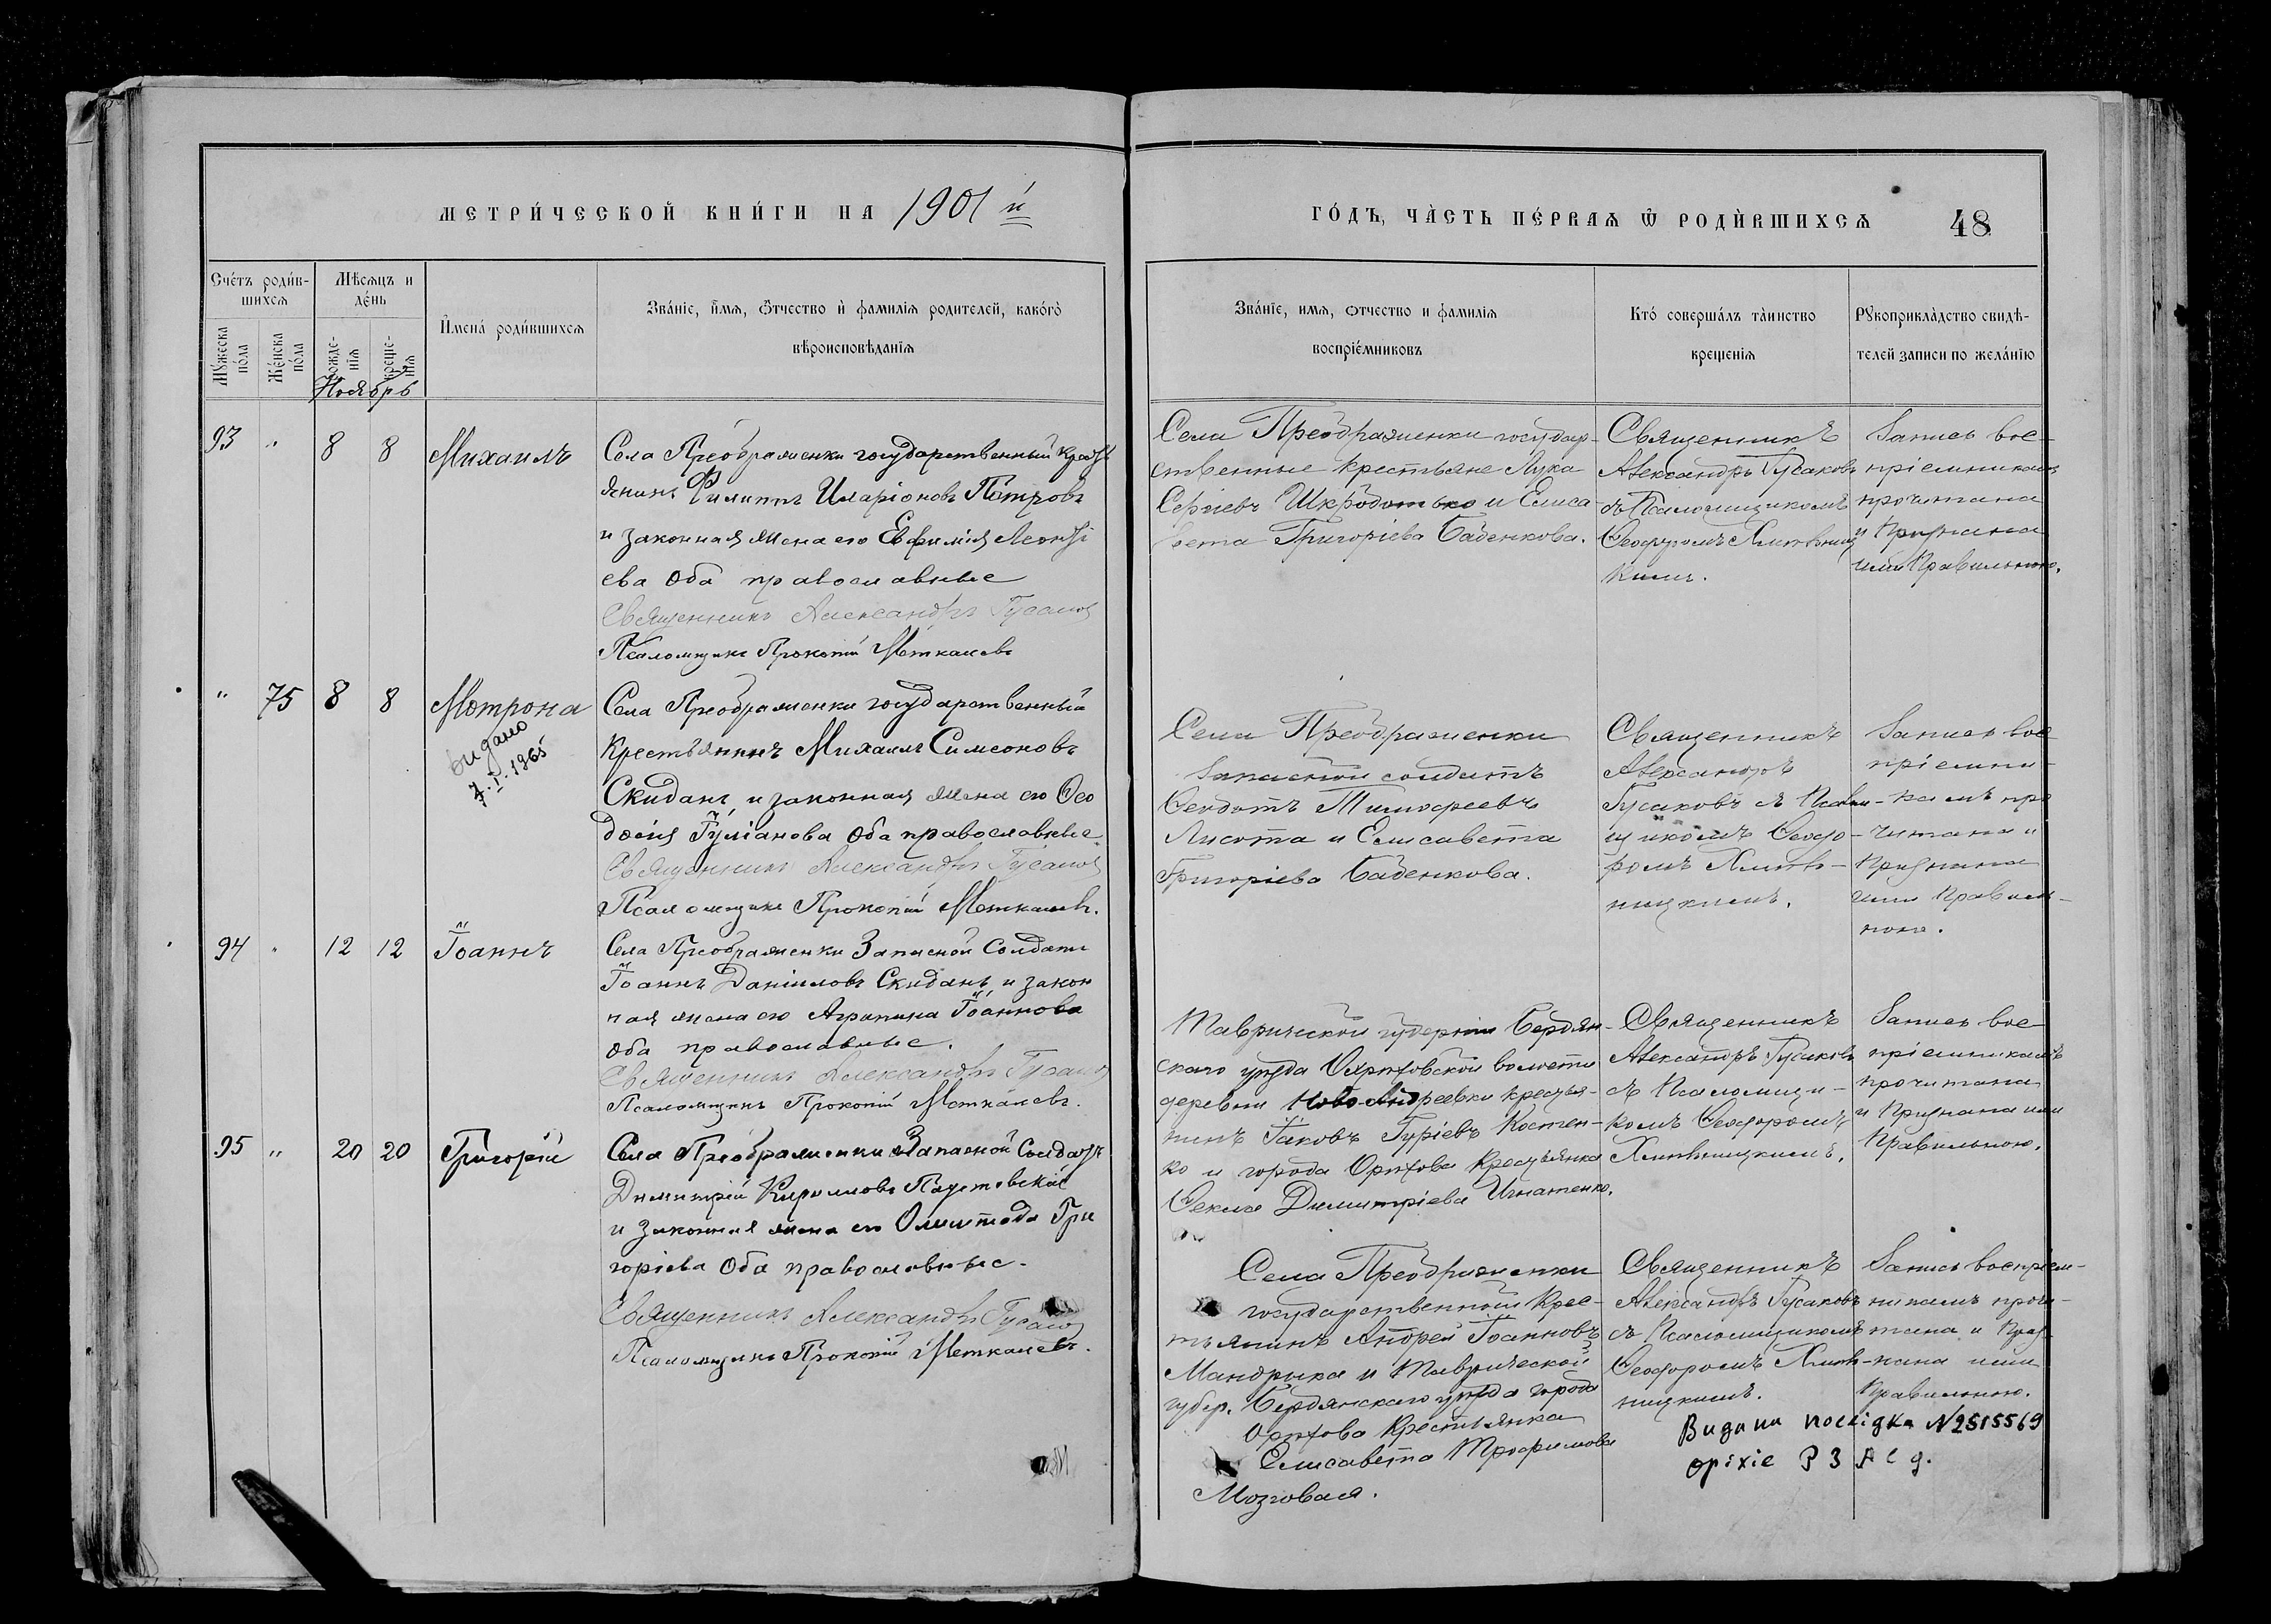 МЕТРИ́ЧЕСКОЙ КНИ́ГИ НА 1901 й
ГО́ДЪ, ЧА̀СТЬ ПЕ́РВАѦ Ѿ РОДЍВШИХСѦ 48
Счéтъ роди́в-
шихсѧ
Мѣ́сѧцъ и
де́нь
Мꙋ́жеска
по́ла
Же́нска
по́ла
рожде-
нїѧ
креще-
нїѧ
И҆мена́ роди́вшихсѧ
Зва́нїе, и҆́мѧ, ѻ҆́тчество и҆ фамилїѧ родителей, како́гѡ
вѣроисповѣ́данїѧ
Зва́нїе, имѧ, ѻтчество и фами́лїѧ
воспрїе́мниковъ
Кто́ соверша́лъ та́инство
креще́нїѧ
Рꙋкоприкла́дство свидѣ́-
телей записи по жела́нїю
Ноябрь
93 " 8 8 Михаилъ
Села Преображенки государственный крестъ
янинъ Филиппъ Иларіоновъ Петровъ
и законная жена его Евфимія Леонті
ева оба православные
Священникъ Александръ Гусаков
Псаломщикъ Прокопій Меткалевъ
Села Преображенки государ-
ственные крестьяне Лука
Сергіевъ Шкродотько и Елиса
вета Григоріева Баденкова.
Священникъ
Александръ Гусаковъ
съ Псаломщикомъ
Ѳеодоромъ
кимъ.
Запись вос-
пріемникамъ
прочитана
и Признана
ими Правильною.
" 75 8 8 Мотрона
видано
7.I.1965
Села Преображенки государственный
крестьянинъ Михаилъ Симеоновъ
Скиданъ и законная жена его Ѳео
досія Іуліанова оба православные
Священникъ Александръ Гусаков
Псаломщикъ Прокопій Меткалевъ.
Села Преображенки
Запасной солдатъ
Ѳеодотъ Тимофеевъ
Лисота и Елисавета
Григоріева Баденкова.
Священникъ
Александръ
Гусаковъ съ Псалом-
щикомъ Ѳеодо-
ромъ
ницкимъ.
Запись вос
пріемни-
камъ про
читана и
Признана
ими Правиль-
ною.
94 " 12 12 Іоаннъ
Села Преображенки Запасной Солдатъ
Іоаннъ Даніиловъ Скиданъ и закон
ная жена его Агрипина Іоаннова
оба православные.
Священникъ Александръ Гусаков
Псаломщикъ Прокопій Меткалевъ.
Таврической губерніи Бердян-
скаго уѣзда Орѣховской волости
деревни Ново-Андреевки крестья-
нинъ Іаковъ Гуріевъ Костен-
ко и города Орѣхова Крестьянка
Ѳекла Димитріева Игнатенко.
Священникъ
Александръ Гусаковъ
съ Псаломщи-
комъ Ѳеодоромъ
Запись вос-
пріемникамъ
прочитана
и Признана ими
Правильною.
95 " 20 20 Григорій
Села Преображенки Запасной Солдатъ
Димитрій Кириловъ Паустовскій
и законная жена его Олимпіада Гри
горіева оба православные.
Священникъ Александръ Гусаков
Псаломщикъ Прокопій Меткалевъ.
Села Преображенки
государственный Крес-
тьянинъ Андрей Іоанновъ
Мандрыка и Таврической
губер. Бердянскаго уѣзда города
Орѣхова Крестьянка
Елисавета Трофимова
Мозговая.
Священникъ
Александръ Гусаковъ
съ Псаломщикомъ
Ѳеодоромъ
ницкимъ.
Запись воспріем-
никамъ прочи-
тана и Приз-
нана ими
Правильною.
Видана посвідка №2515569
оріхіе РЗАСд.